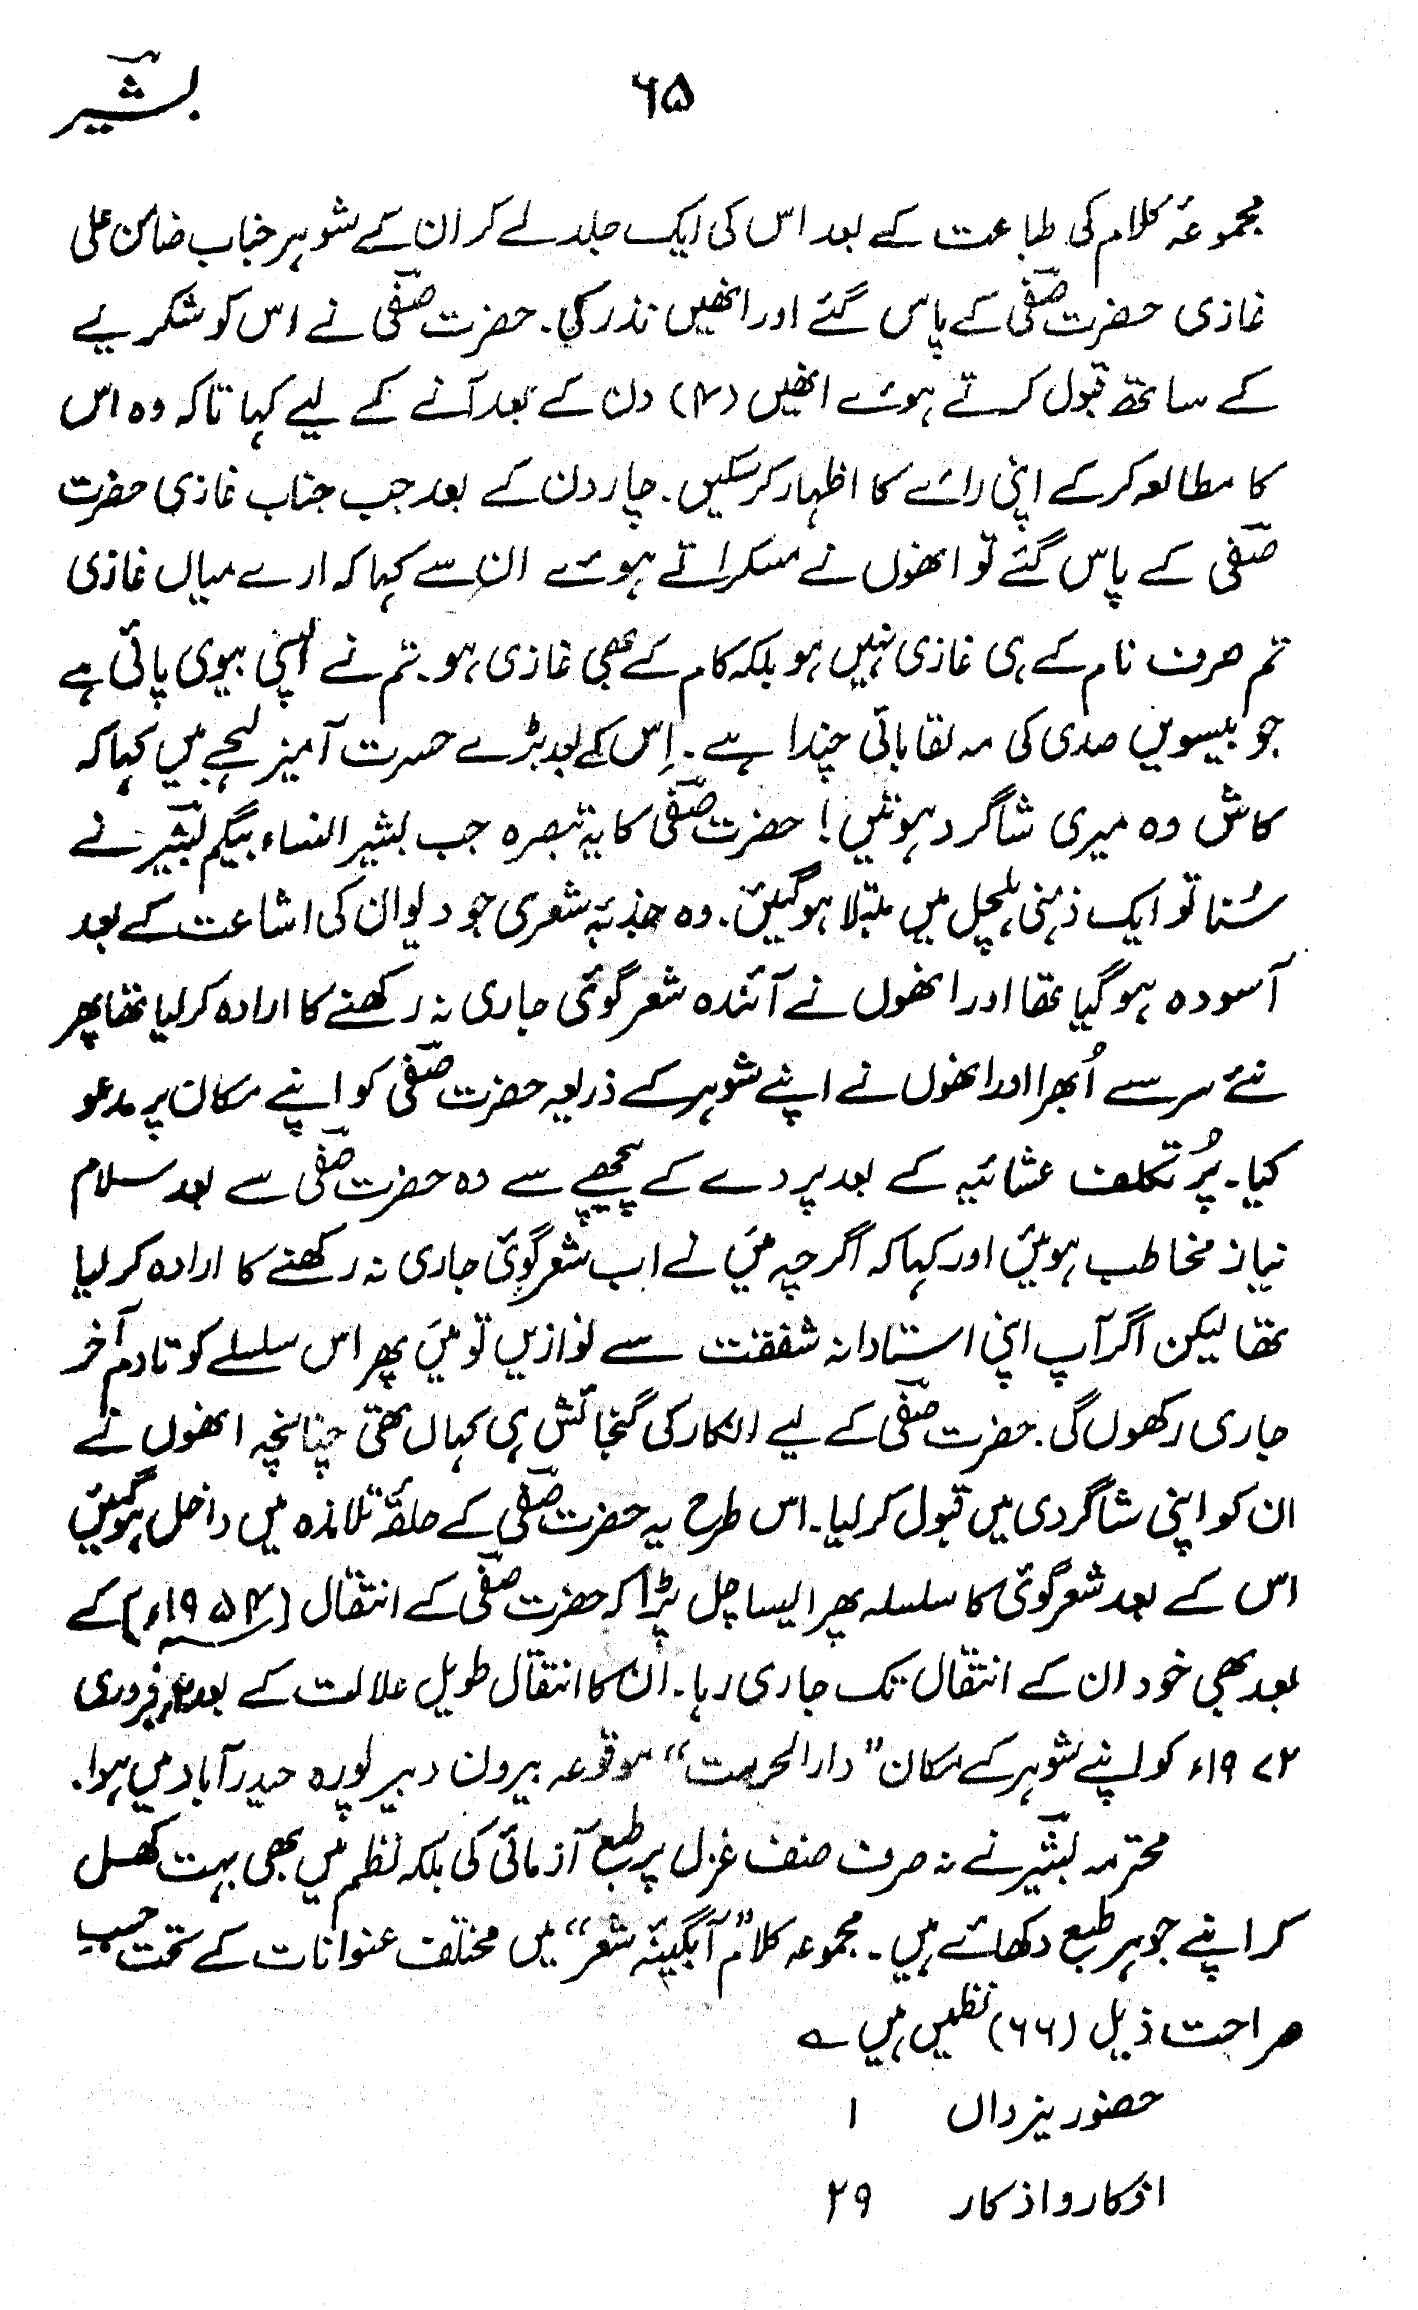 ۶۵
بشیرؔ
مجموعۂ کلام کی طباعت کے بعد اس کی ایک جلد لے کر ان کے شوہر جناب ضامن علی
غازی حضرت صفیؔ کے پاس گئے اور انھیں نذر کی۔ حضرت صفیؔ نے اس کو شکریے
کے ساتھ قبول کرتے ہوئے انھیں (۴) دن کے بعد آنے کے لیے کہا تاکہ وہ اس
کا مطالعہ کرکے اپنی رائے کا اظہار کرسکیں۔ چار دن کے بعد جب جناب غازی حضرت
صفیؔ کے پاس گئے تو انھوں نے مسکراتے ہوئے ان سے کہا کہ ارے میاں غازی
تم صرف نام کے ہی غازی نہیں ہو بلکہ کام کے بھی غازی ہو۔ تم نے ایسی بیوی پائی ہے
جو بیسویں صدی کی مہ لقا بائی چندا ہے۔ اِس کے بعد بڑے حسرت آمیز لہجے میں کہا کہ
کاش وہ میری شاگرد ہوتیں! حضرت صفیؔ کا یہ تبصرہ جب بشیر النساء بیگم بشیرؔ نے
سُنا تو ایک ذہنی ہلچل میں مبتلا ہوگئیں۔ وہ جذبۂ شعری جو دیوان کی اشاعت کے بعد
آسودہ ہوگیا تھا اور انھوں نے آئندہ شعر گوئی جاری نہ رکھنے کا ارادہ کرلیا تھا پھر
نئے سر سے اُبھرا اور انھوں نے اپنے شوہر کے ذریعہ حضرت صفیؔ کو اپنے مکان پر مدعو
کیا۔ پُر تکلف عشائیہ کے بعد پردے کے پیچھے سے وہ حضرت صفیؔ سے بعد سلام
نیاز مخاطب ہوئیں اور کہا کہ اگرچہ میَں نے اب شعر گوئی جاری نہ رکھنے کا ارادہ کرلیا
تھا لیکن اگر آپ اپنی استادانہ شفقت سے نوازیں تو میَں پھر اس سلسلے کو تادم آخر
جاری رکھوں گی۔ حضرت صفیؔ کے لیے انکار کی گنجائش ہی کہاں تھی چنانچہ انھوں نے
ان کو اپنی شاگردی میں قبول کرلیا۔ اس طرح یہ حضرت صفیؔ کے حلقۂ تلامذہ میں داخل ہوگئیں
اس کے بعد شعر گوئی کا سلسلہ پھر ایسا چل پڑا کہ حضرت صفیؔ کے انتقال (۱۹۵۴ء) کے
بعد بھی خود ان کے انتقال تک جاری رہا۔ ان کا انتقال طویل علالت کے بعد فروری
۱۹۷۲ء کو اپنے شوہر کے مکان "دارالحرمت" موقوعہ بیرون دبیر پورہ حیدرآباد میں ہوا۔
محترمہ بشیرؔ نے نہ صرف صنف غزل پر طبع آزمائی کی بلکہ نظم میں بھی بہت کھل
کر اپنے جوہر طبع دکھائے ہیں۔ مجموعہ کلام "آبگینۂ شعر" میں مختلف عنوانات کے تحت حسبِ
صراحت ذیل (۶۶) نظمیں ہیں ے
حضور یزداں ۱
افکار و اذکار ۲۹